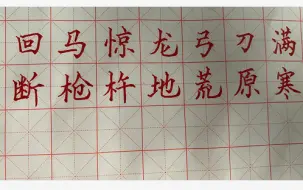 回马惊龙弓刀满
断枪杵地荒原寒